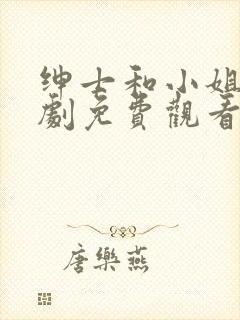 绅士和小姐
劇免費觀看
唐樂燕